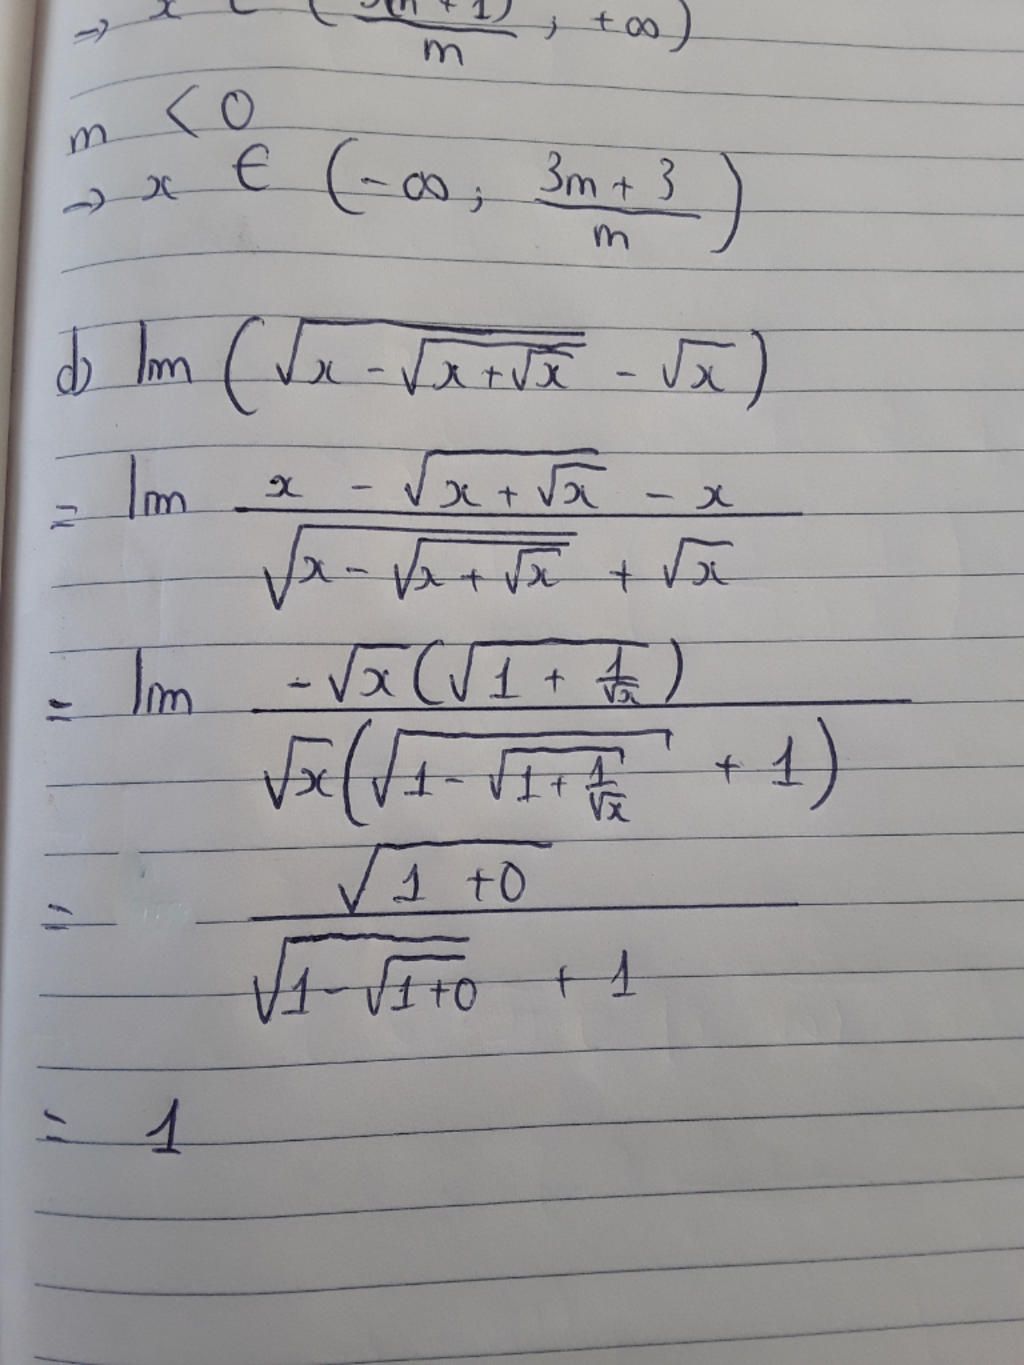 → x ∈ (3(m + 1)/m ; +∞)
m < 0
→ x ∈ (-∞; (3m + 3)/m)
d) lim (√(x - √(x + √x)) - √x)
= lim (x - √(x + √x) - x)/(√(x - √(x + √x)) + √x)
= lim (-√x(√(1 + 1/√x)))/(√x(√(1 - √(1 + 1/√x)) + 1))
= √(1 + 0)/(√(1 - √(1+0)) + 1)
= 1